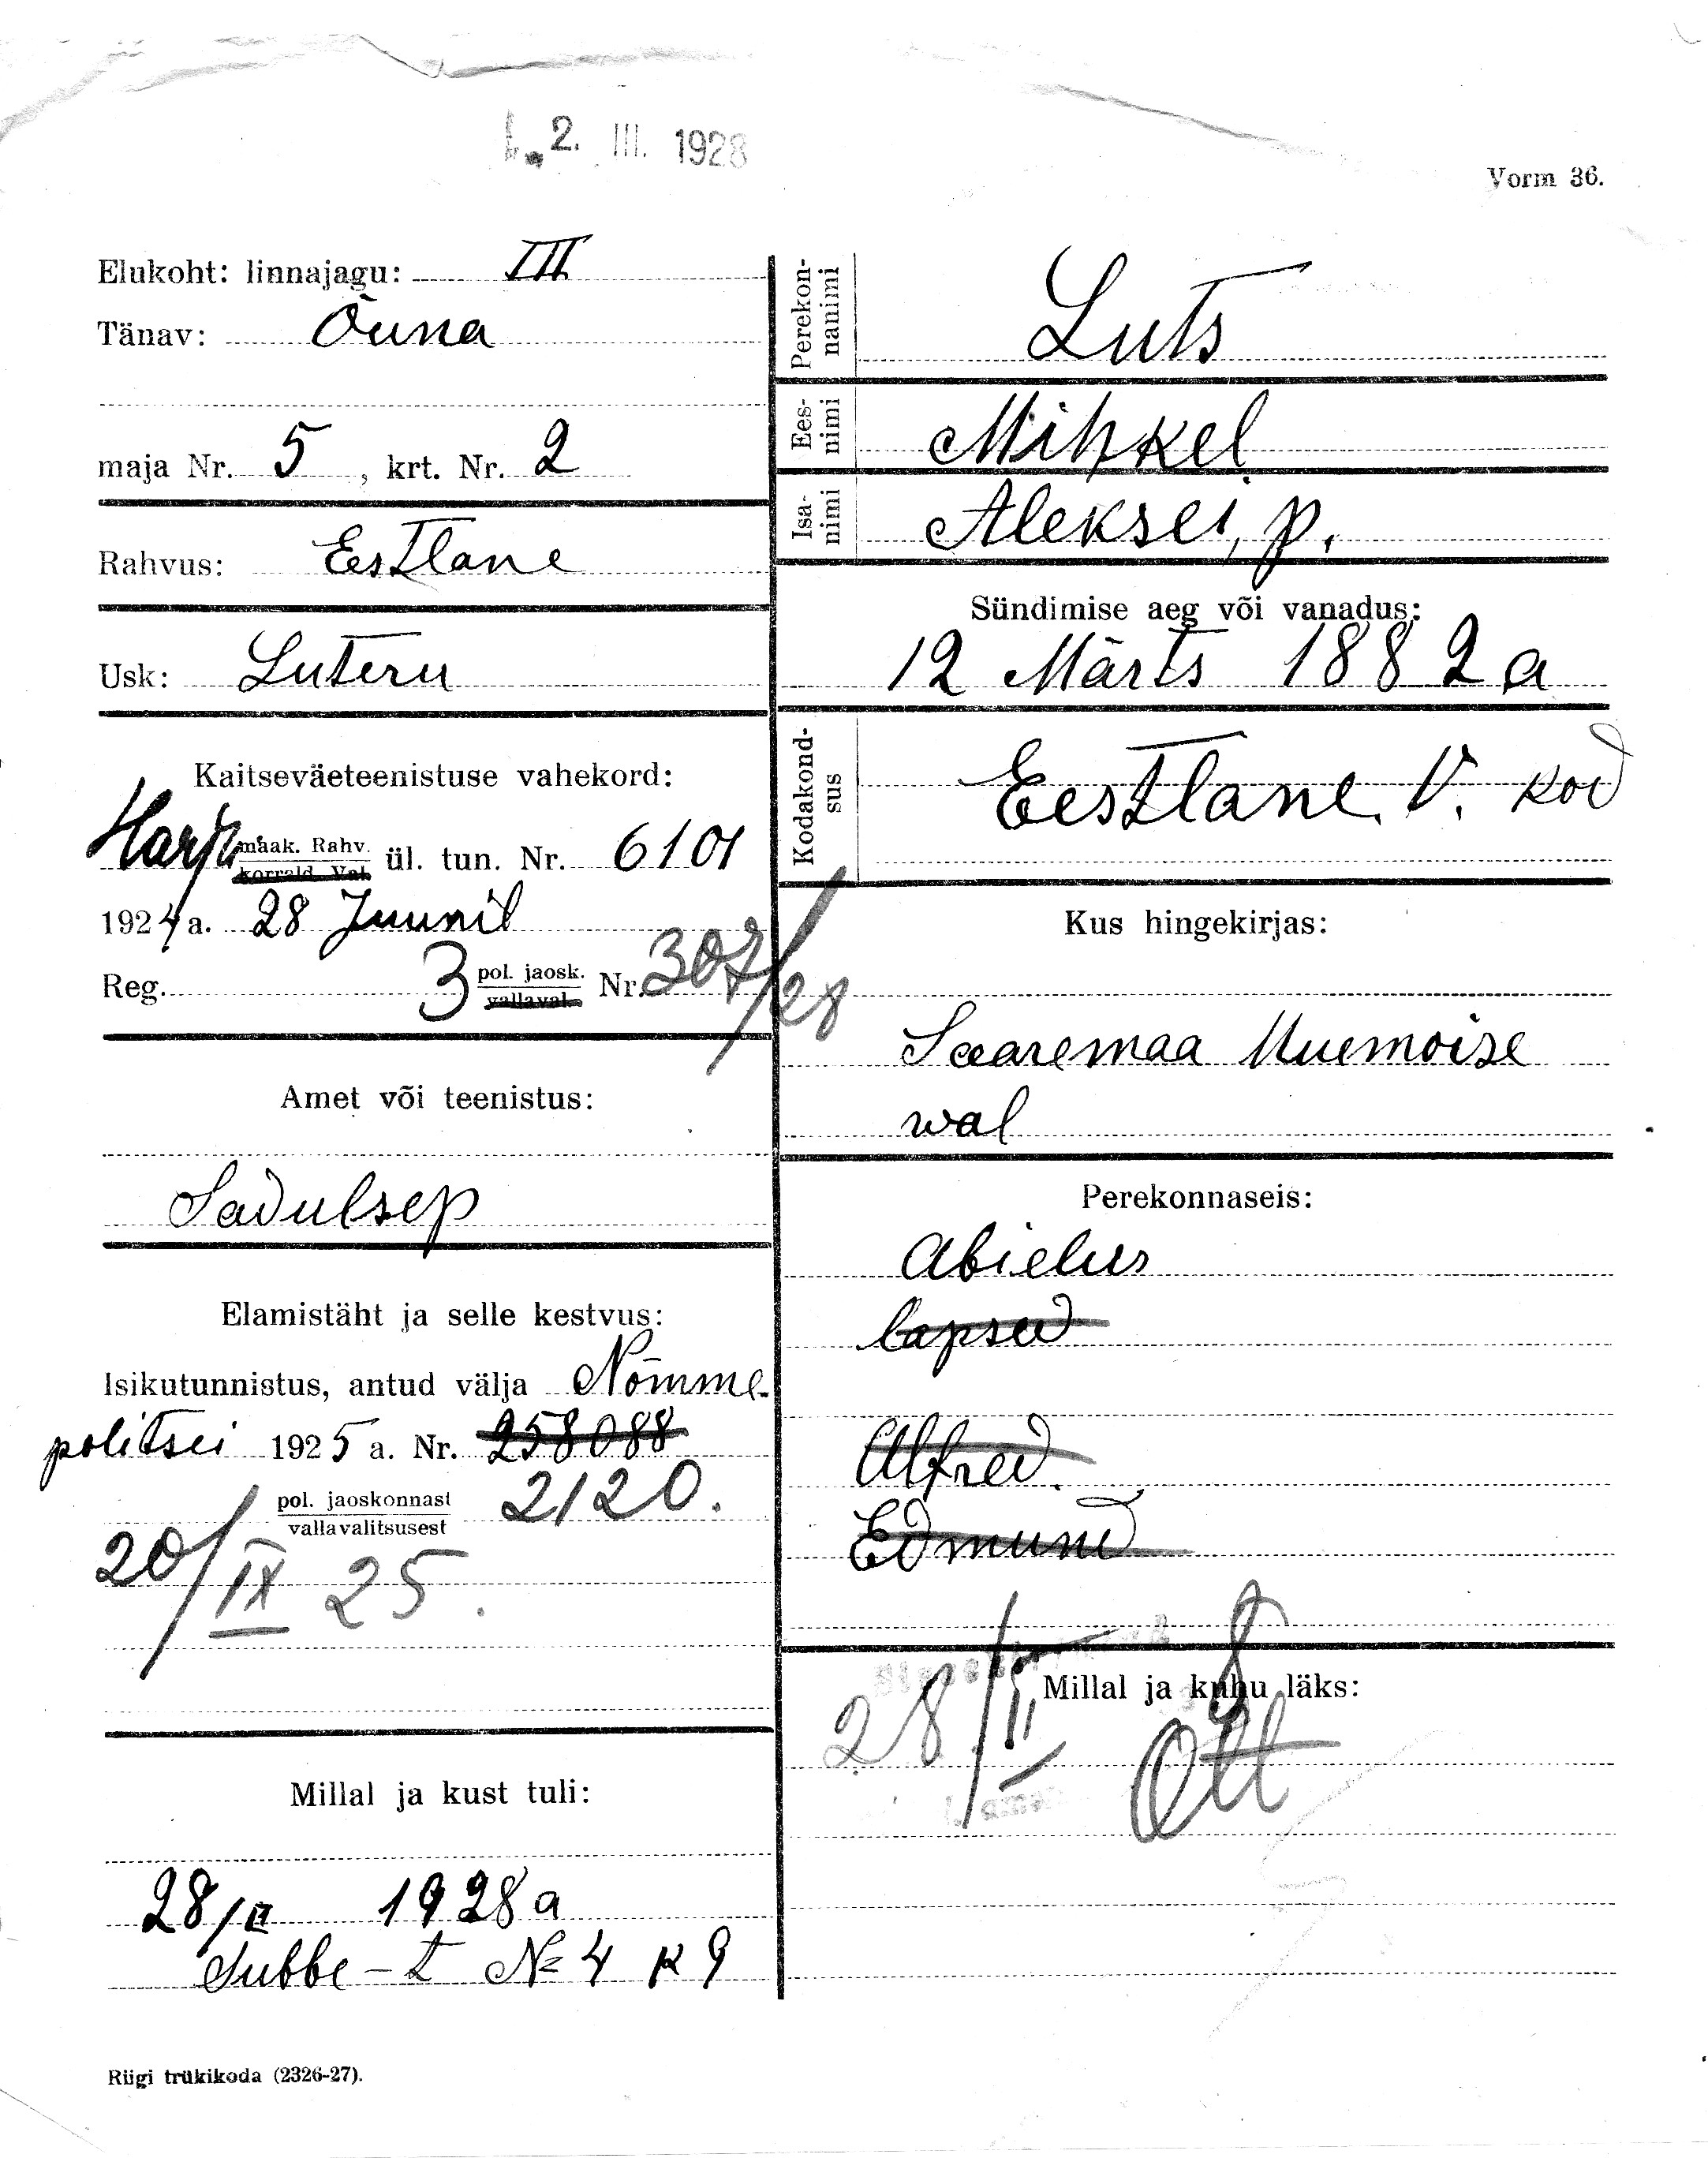 2. III. 1928
Vorm 36.
Elukoht: linnajagu: III
Tänav: Õuna
maja Nr. 5, krt. Nr. 2
Rahvus: Eestlane
Usk: Luteru
Kaitseväeteenistuse vahekord:
Harju maak. Rahv. korrald. Val. ül. tun. Nr. 6101
1924 a. 28 Juunil
Reg. 3 pol. jaosk. vallaval. Nr. 307/28
Amet või teenistus:
Sadulsep
Elamistäht ja selle kestvus:
Isikutunnistus, antud välja Nõmme
politsei 1925 a. Nr. 258088
pol. jaoskonnast 2120.
vallavalitsusest
20/IX 25.
Millal ja kust tuli:
28/II 1928 a
Subbe-t № 4 k 9
Riigi trükikoda (2326-27).
Perekon-
nanimi
Luts
Ees-
nimi
Mihkel
Isa-
nimi
Aleksei, p.
Sündimise aeg või vanadus:
12 Märts 1882 a
Kodakond-
sus
Eestlane. V. kod
Kus hingekirjas:
Saaremaa Uuemoise
wal
Perekonnaseis:
Abielus
lapsed
Alfred
Edmund
Millal ja kuhu läks:
28/II
Ott